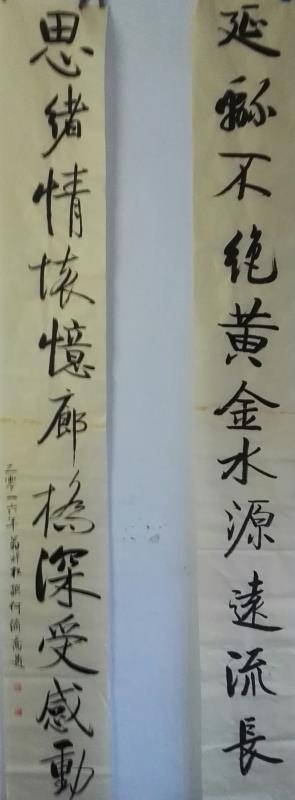 延緜不绝黄金水源遠流長
思緒情懷憶廊橋深受感動
二零一六年